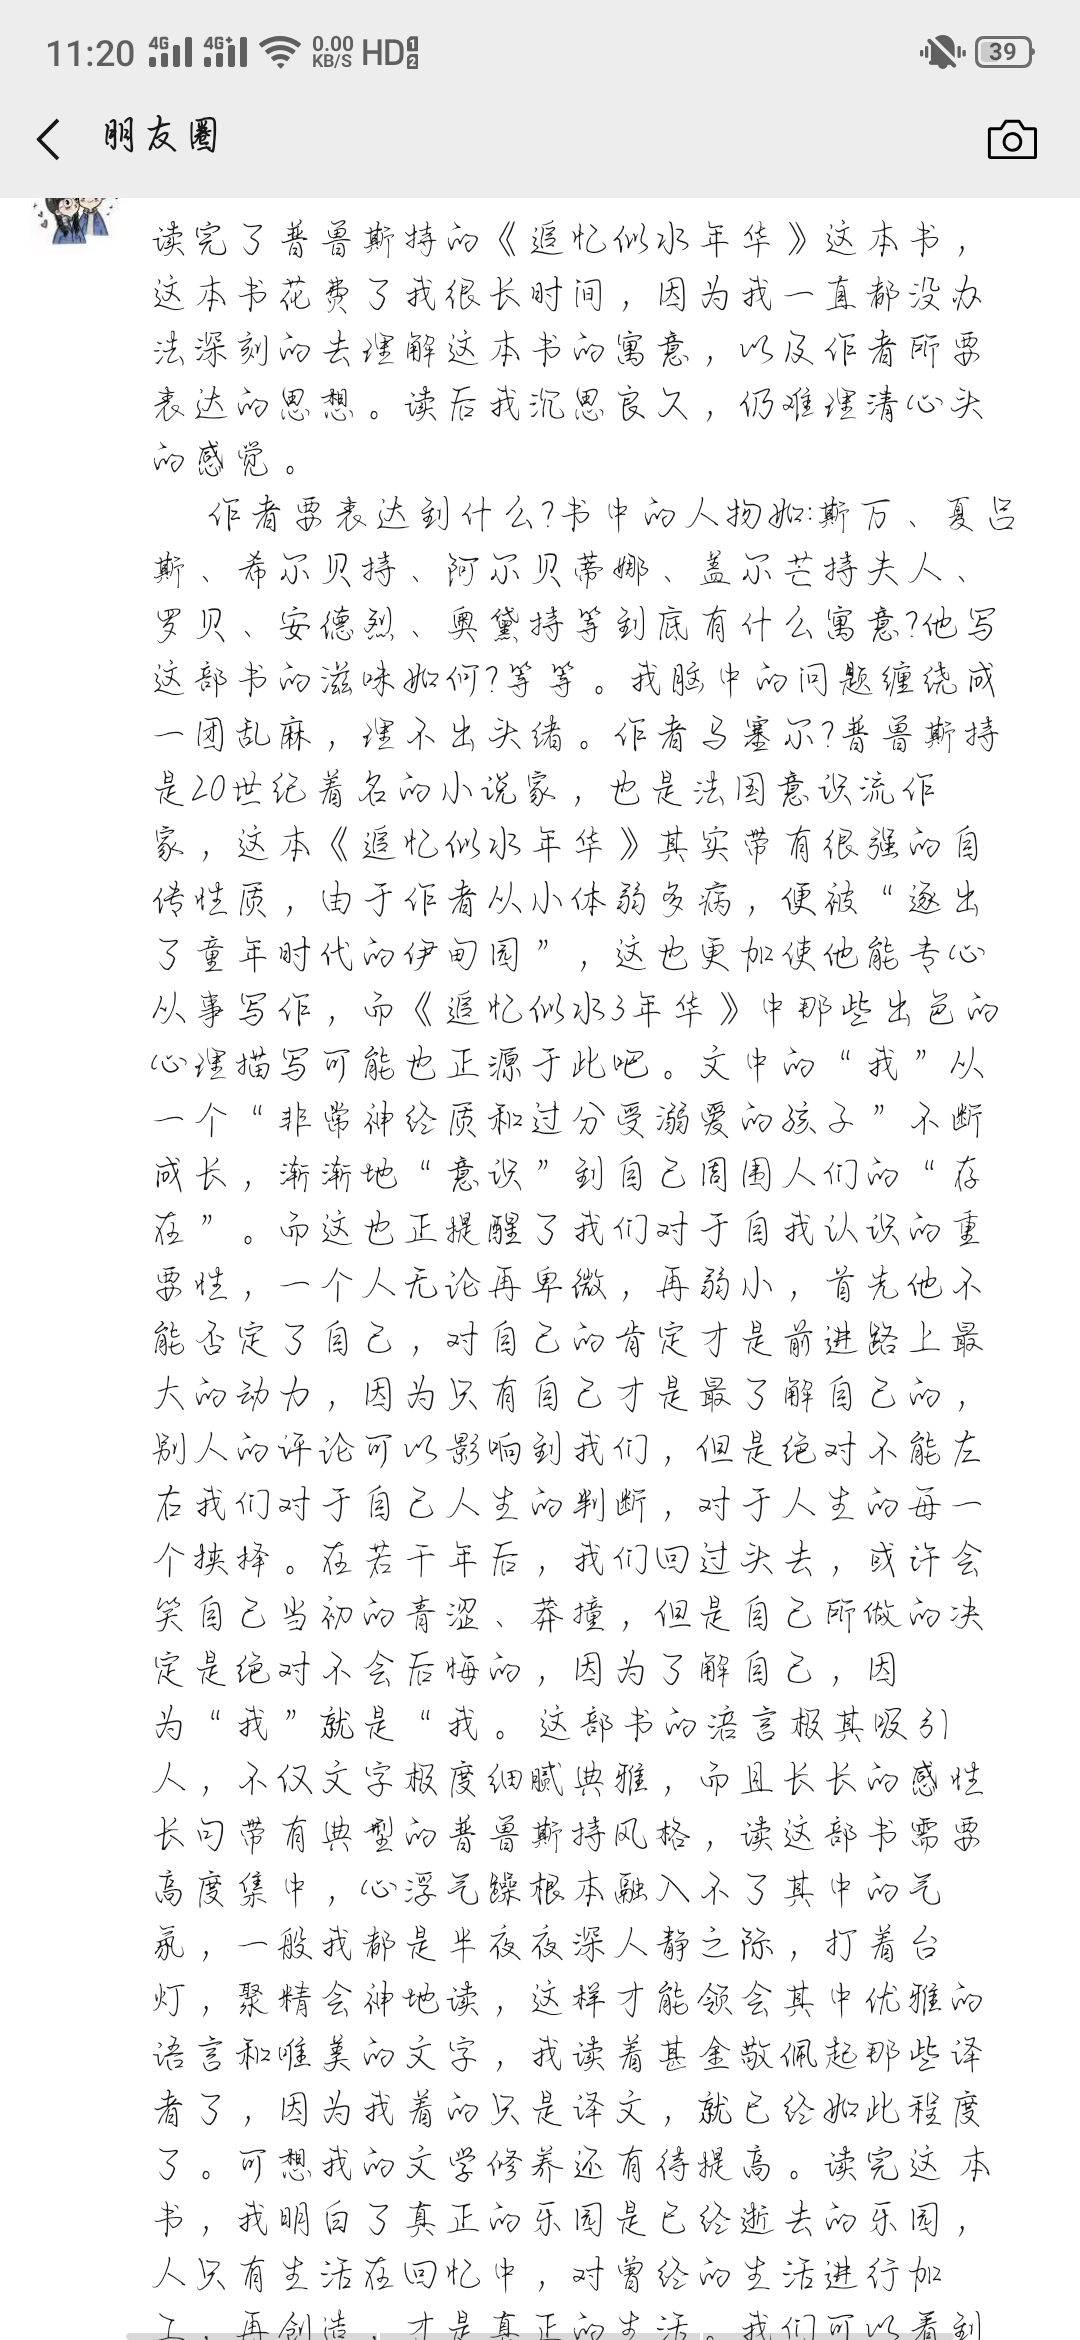 11:20 4G 4G+ 0.00 KB/S HD 1 2 39
朋友圈
读完了普鲁斯特的《追忆似水年华》这本书，
这本书花费了我很长时间，因为我一直都没办
法深刻的去理解这本书的寓意，以及作者所要
表达的思想。读后我沉思良久，仍难理清心头
的感觉。
作者要表达到什么?书中的人物如:斯万、夏吕
斯、希尔贝特、阿尔贝蒂娜、盖尔芒特夫人、
罗贝、安德烈、奥黛特等到底有什么寓意?他写
这部书的滋味如何?等等。我脑中的问题缠绕成
一团乱麻，理不出头绪。作者马塞尔?普鲁斯特
是20世纪着名的小说家，也是法国意识流作
家，这本《追忆似水年华》其实带有很强的自
传性质，由于作者从小体弱多病，便被“逐出
了童年时代的伊甸园”，这也更加使他能专心
从事写作，而《追忆似水3年华》中那些出色的
心理描写可能也正源于此吧。文中的“我”从
一个“非常神经质和过分受溺爱的孩子”不断
成长，渐渐地“意识”到自己周围人们的“存
在”。而这也正提醒了我们对于自我认识的重
要性，一个人无论再卑微，再弱小，首先他不
能否定了自己，对自己的肯定才是前进路上最
大的动力，因为只有自己才是最了解自己的，
别人的评论可以影响到我们，但是绝对不能左
右我们对于自己人生的判断，对于人生的每一
个抉择。在若干年后，我们回过头去，或许会
笑自己当初的青涩、莽撞，但是自己所做的决
定是绝对不会后悔的，因为了解自己，因
为“我”就是“我。这部书的语言极其吸引
人，不仅文字极度细腻典雅，而且长长的感性
长句带有典型的普鲁斯特风格，读这部书需要
高度集中，心浮气躁根本融入不了其中的气
氛，一般我都是半夜夜深人静之际，打着台
灯，聚精会神地读，这样才能领会其中优雅的
语言和唯美的文字，我读着甚至敬佩起那些译
者了，因为我着的只是译文，就已经如此程度
了。可想我的文学修养还有待提高。读完这本
书，我明白了真正的乐园是已经逝去的乐园，
人只有生活在回忆中，对曾经的生活进行加
工，再创造，才是真正的生活。我们可以看到